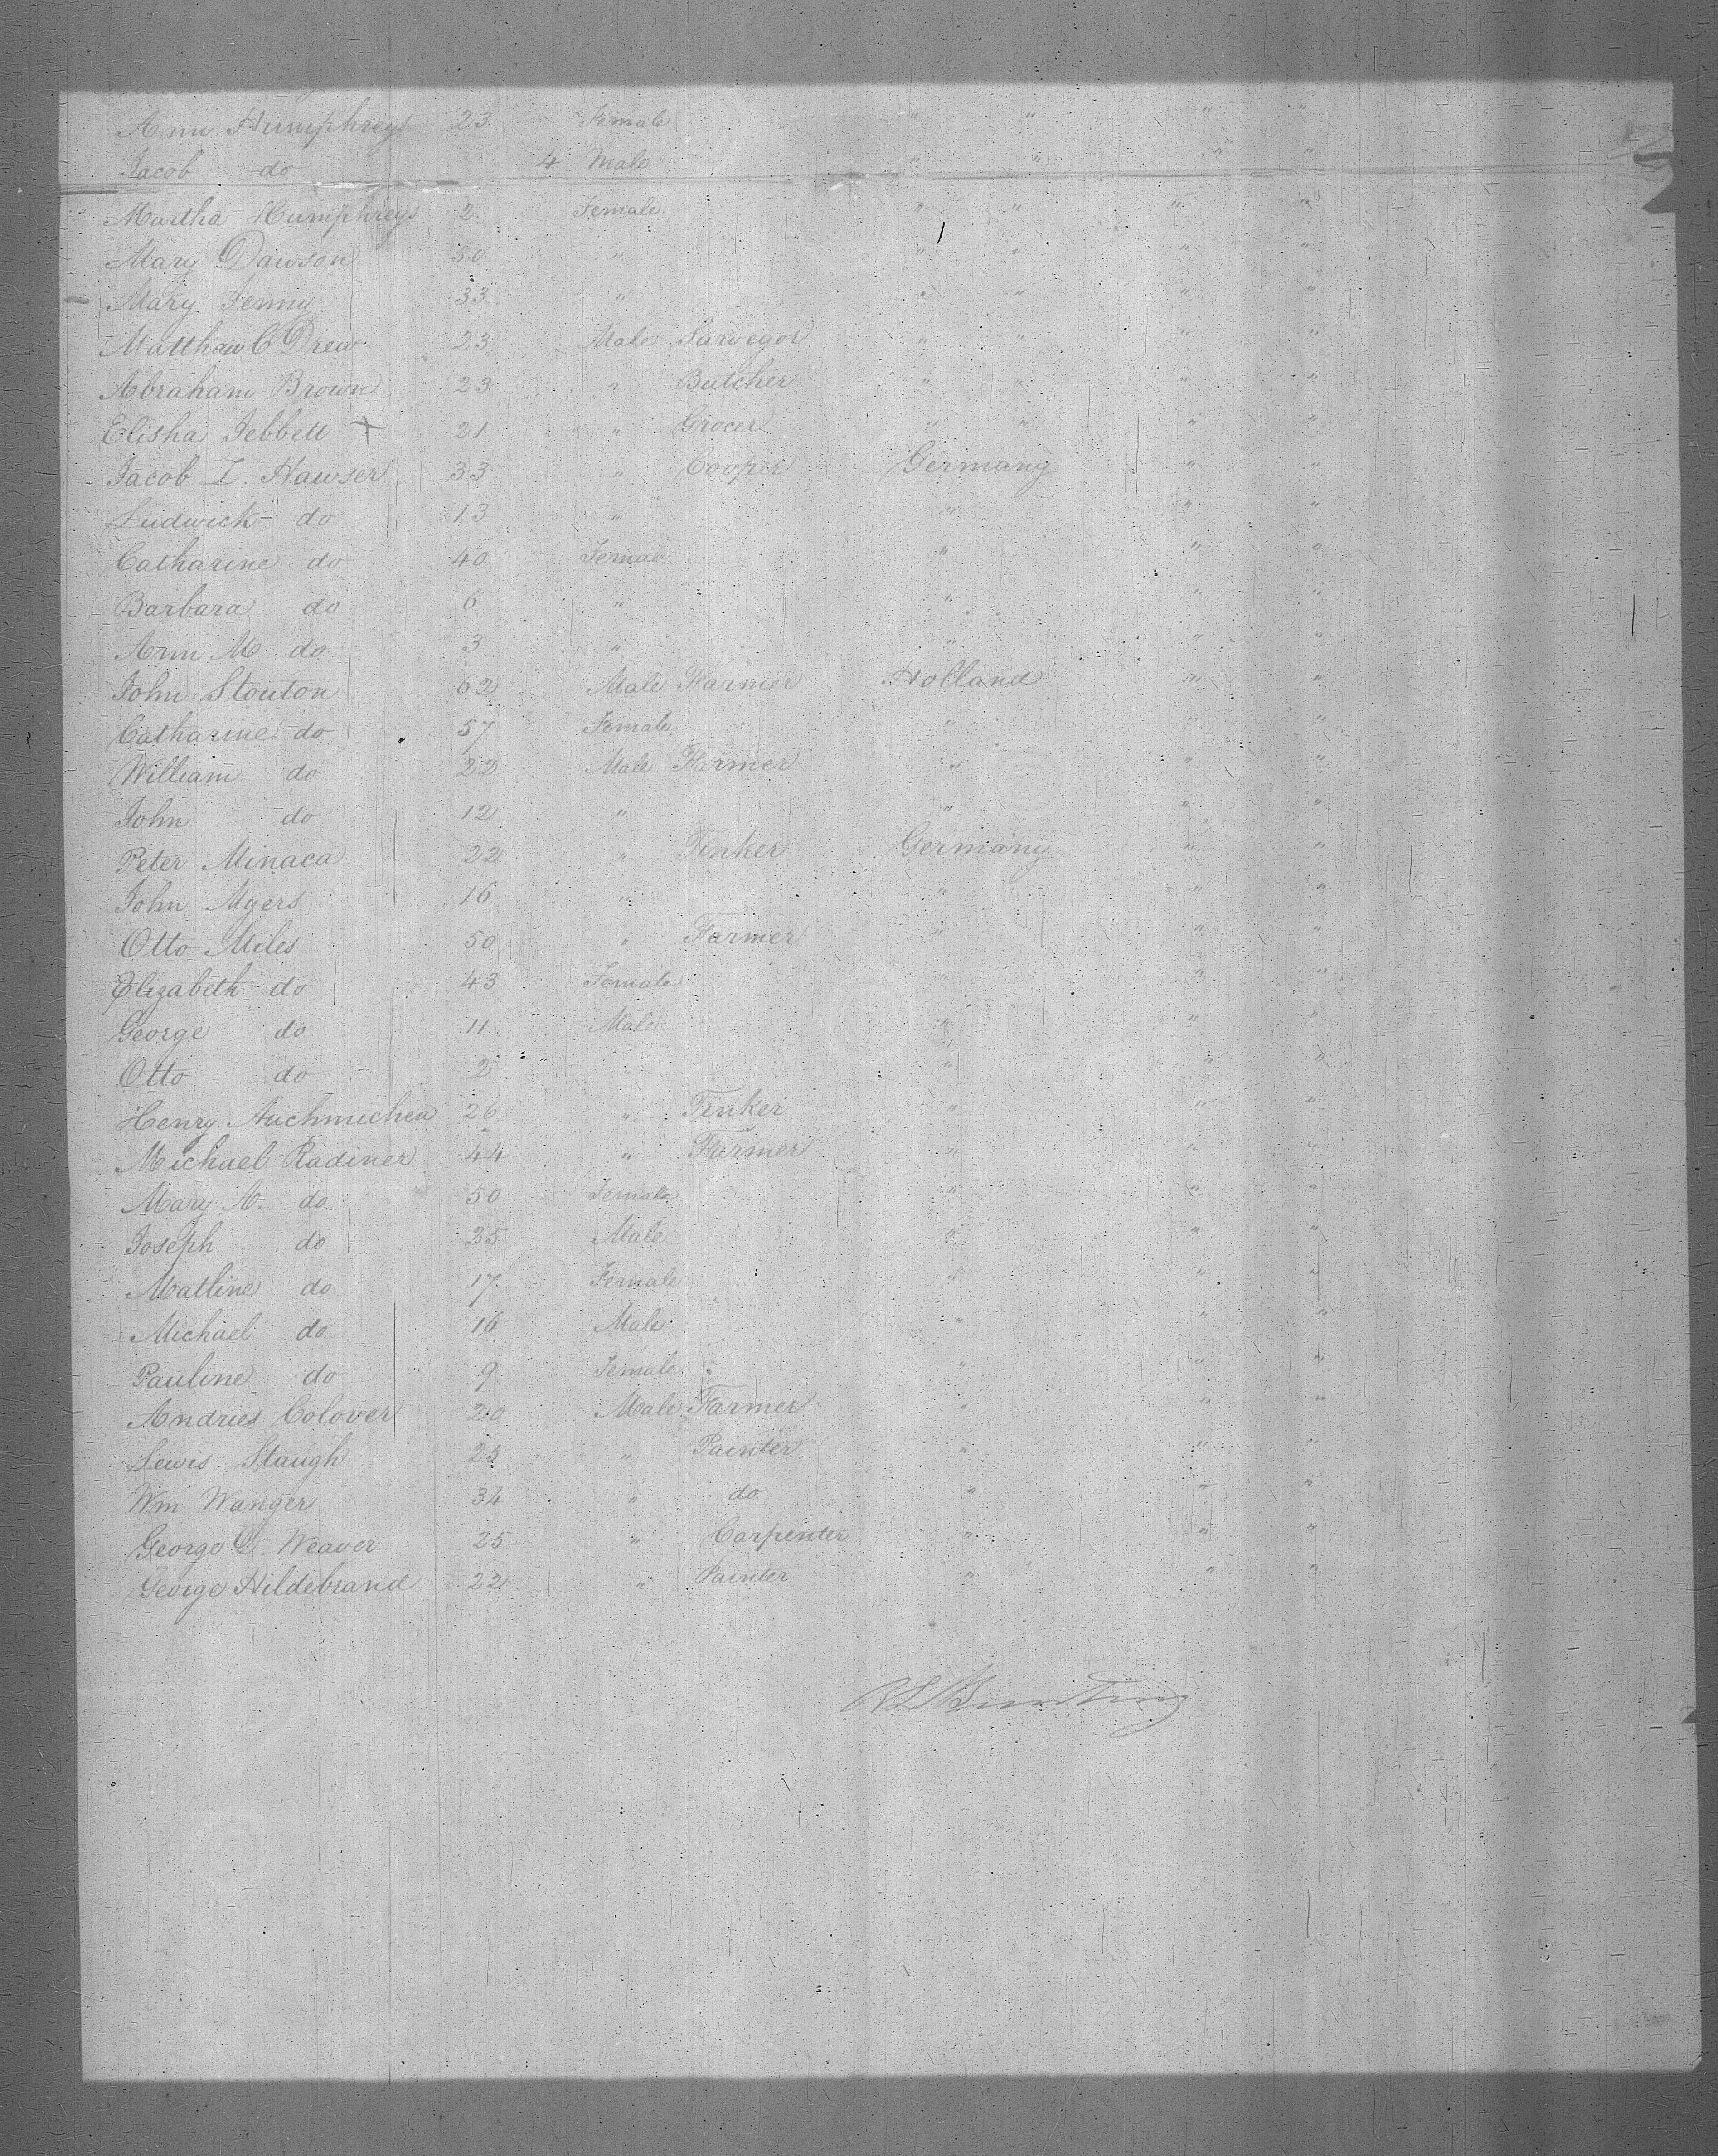 Ann Humphreys 23 Female " " " "
Jacob do 4 Male " " " "
Martha Humphreys 2 Female " " " "
Mary Dawson 50 " " " " "
Mary Jenny 33 " " " " "
Matthew C Drew 23 Male Surveyor " " " "
Abraham Brown 23 " Butcher " " " "
Elisha Jebbett X 21 " Grocer " " " "
Jacob I. Hawser 33 " Cooper Germany " "
Ludwick do 13 " " " "
Catharine do 40 Female " " "
Barbara do 6 " " " "
Ann M do 3 " " " "
John Stouton 62 Male Farmer Holland " "
Catharine do 57 Female " " "
William do 22 Male Farmer " " "
John do 12 " " " "
Peter Minaca 22 " Tinker Germany " "
John Myers 16 " " " "
Otto Miles 50 " Farmer " " "
Elizabeth do 43 Female " " "
George do 11 Male " " "
Otto do 2 " " " "
Henry 26 " Tinker " " "
Michael Radiner 44 " Farmer " " "
Mary A. do 50 Female " " "
Joseph do 25 Male " " "
Matline do 17 Female " " "
Michael do 16 Male " " "
Pauline do 9 Female " " "
Andries Colover 20 Male Farmer " " "
Lewis Staugh 25 " Painter " " "
Wm Wanger 34 " do " " "
George D Weaver 25 " Carpenter " " "
George Hildebrand 22 " Painter " " "
Bunting